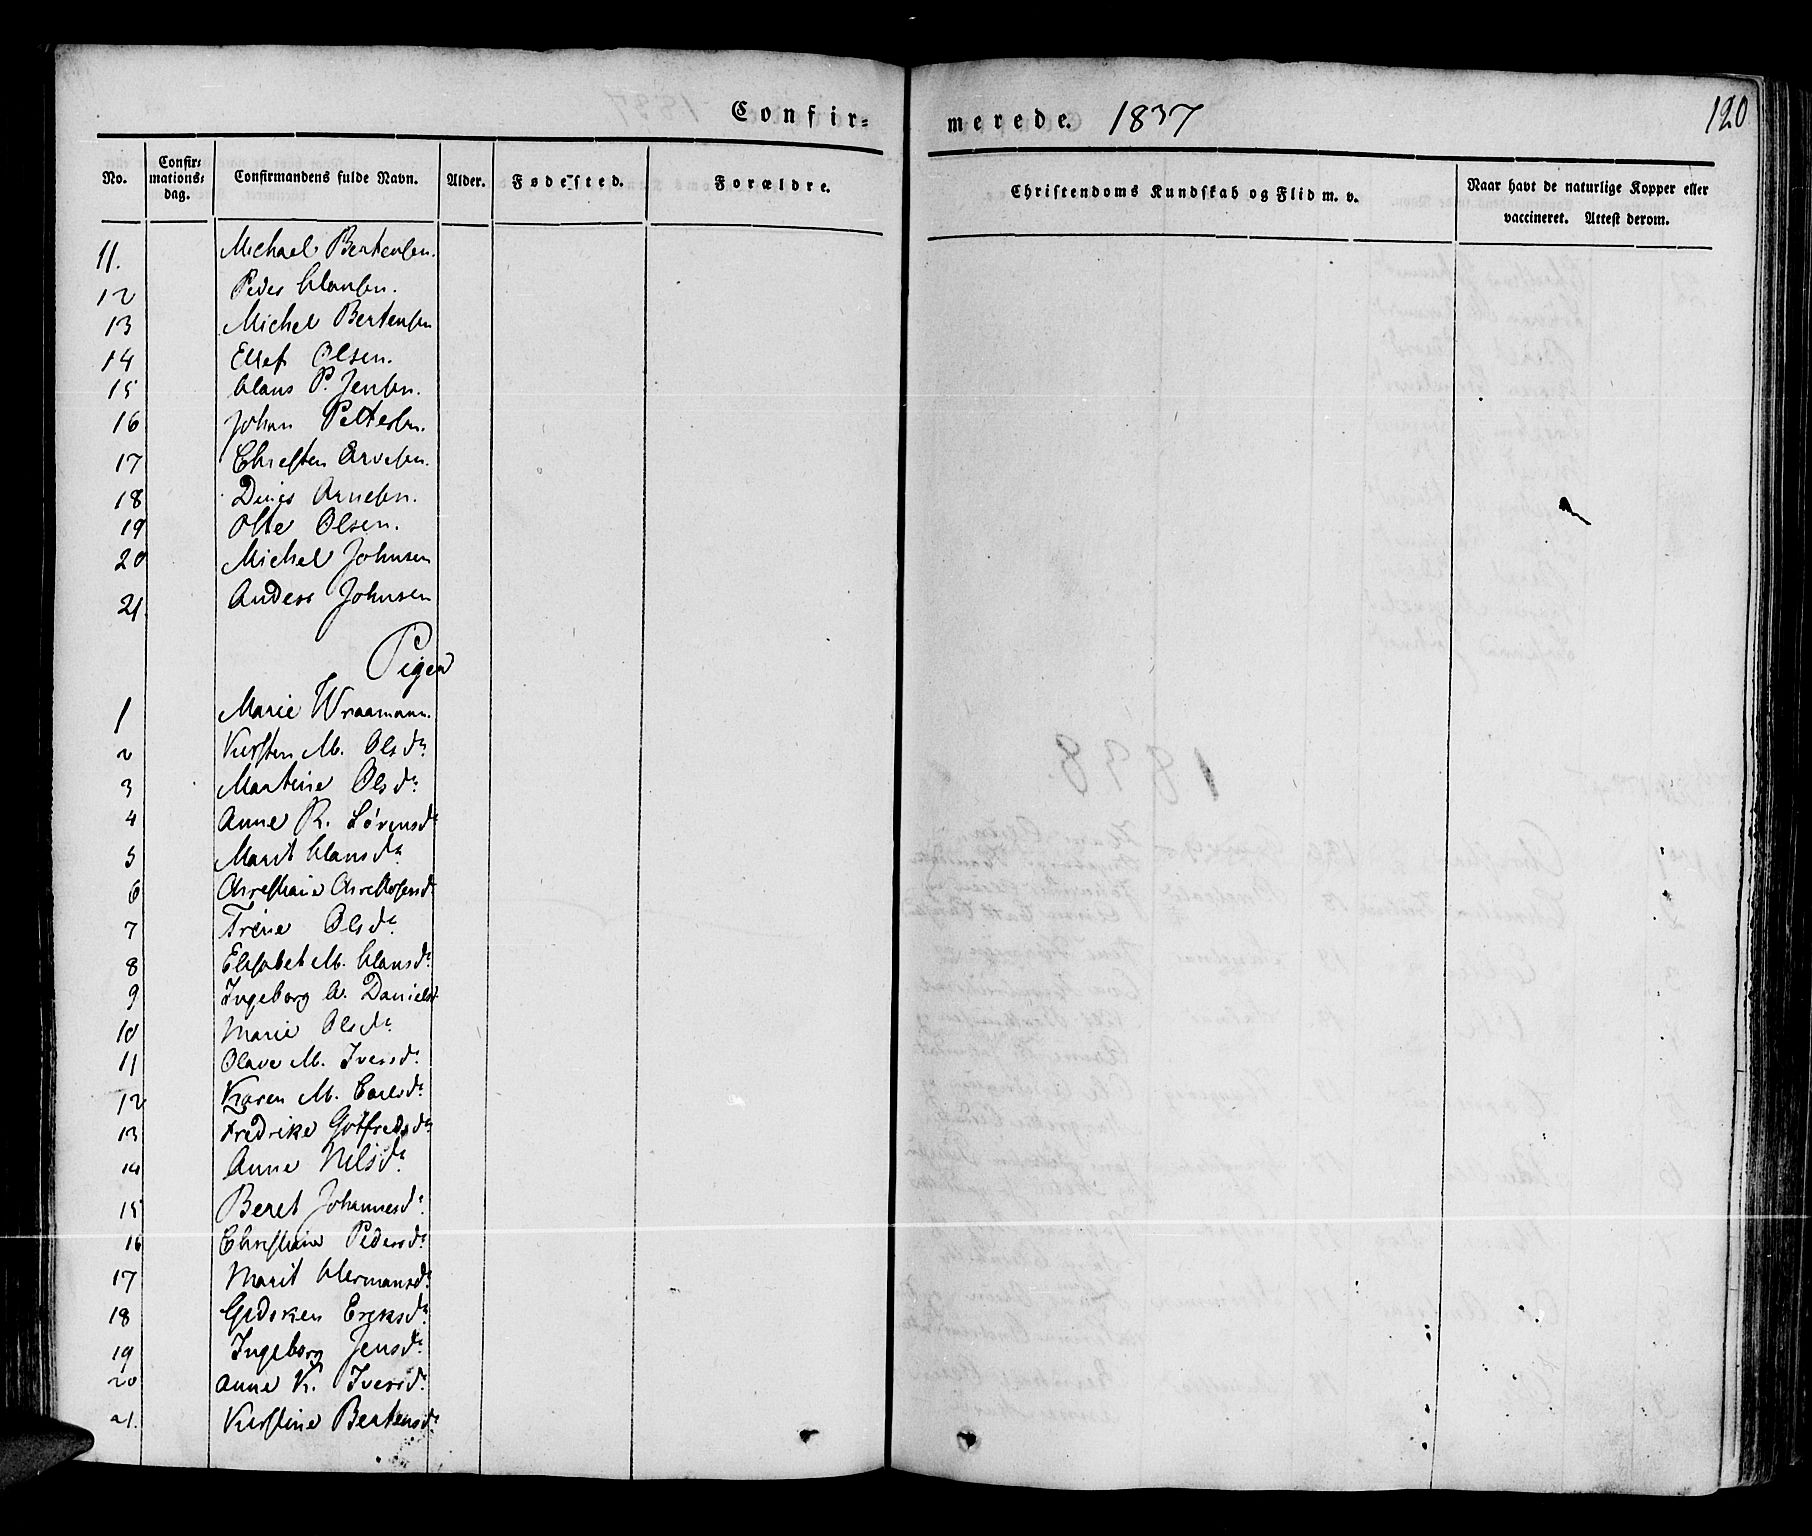 Confir=
merede. 1837
120
No.
Confir=
mations=
dag.
Confirmandens fulde Navn.
Alder.
Fødested.
Forældre.
Christendoms Kundskab og Flid m. v.
Naar havt de naturlige Kopper eller
vaccineret. Attest derom.
11. Michael Bertensen.
12 Peder Clausen.
13 Michel Bertensen
14 Ellef Olsen.
15 Claus P. Jensen.
16 Johan Pettersen.
17 Christen Arvesen.
18 Arnesen.
19 Otte Olsen.
20 Michel Johnsen
21. Anders Johnsen
Piger
1 Marie Wraamann.
2 Kirsten M. Olsdr
3 Martine Olsdr
4 Anne R. Sørensdr
5 Marit Clausdr
6 Christiane Christofersdr
7 Trine Olsdr
8 Elisabet M. Clausdr
9 Ingeborg A. Danielsdr
10 Marie Olsdr
11 Olave M. Iversdr
12 Karen M. Carlsdr
13 Fredrike Gotfredsdr
14 Anne Nilsdr
15 Beret Johannesdr
16 Christiane Pedersdr
17 Marit Hermansdr
18 Gedsken Eriksdr
19 Ingeborg Jensdr
20 Anne K. Iversdr
21. Kirstine Bertensdr